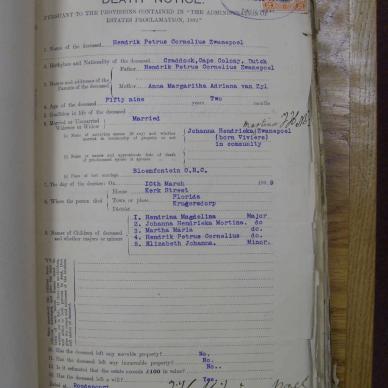 DEATH NOTICE.
PURSUANT TO THE PROVISIONS CONTAINED IN "THE ADMINISTRATION OF
ESTATES PROCLAMATION, 1902"
1. Name of the deceased Hendrik Petrus Cornelius Zwanepoel
2. Birthplace and Nationality of the deceased Craddock, Cape Colony, Dutch
3. Names and addresses of the Parents of the deceased
Father Hendrik Petrus Cornelius Zwanepoel
Mother Anna Margaritha Adriana van Zyl
4. Age of the deceased Fifty nine years Two months
5. Condition in life of the deceased
6. Married or Unmarried Widower or Widow Married
Johanna Hendrieka Zwanepoel
(born Viviers)
in community
Place of last marriage Bloemfontein O.R.C.
7. The day of the decease: On 10th March 1909
8. Where the person died
House Kerk Street
Town or place Florida
District Krugersdorp
9. Names of Children of deceased and whether majors or minors
1. Hendrina Magdelina Major
2. Johanna Hendrieka Mortina. do
3. Martha Maria do.
4. Hendrik Petrus Cornelius do.
5. Elizabeth Johanna. Minor.
10. Has the deceased left any movable property? No.
11. Has the deceased left any immovable property? No.
12. Is it estimated that the estate exceeds £100 in value? No..
13. Has the deceased left a will? Yes.
Dated at Roodepoort